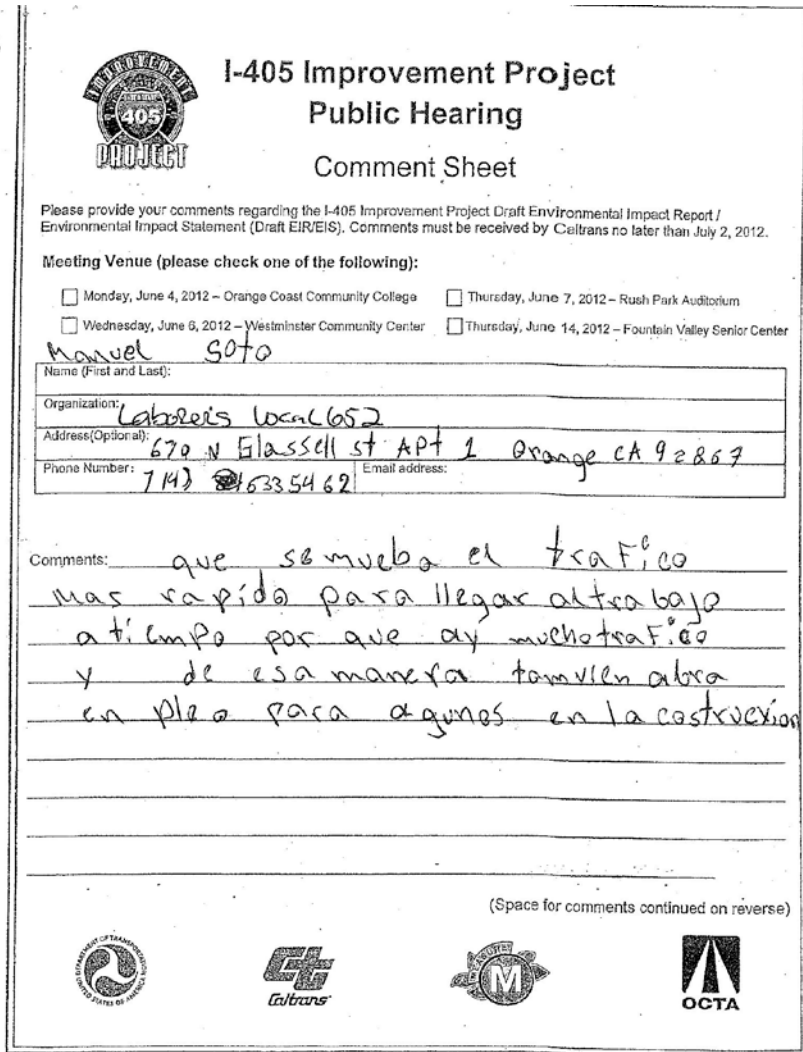 IMPROVEMENT
405
PROJECT
I-405 Improvement Project
Public Hearing
Comment Sheet
Please provide your comments regarding the I-405 Improvement Project Draft Environmental Impact Report /
Environmental Impact Statement (Draft EIR/EIS). Comments must be received by Caltrans no later than July 2, 2012.
Meeting Venue (please check one of the following):
Monday, June 4, 2012 – Orange Coast Community College Thursday, June 7, 2012 – Rush Park Auditorium
Wednesday, June 6, 2012 – Westminster Community Center Thursday, June 14, 2012 – Fountain Valley Senior Center
Manuel Soto
Name (First and Last):
Organization: Laborers Local 652
Address(Optional): 670 N Glassell st APt 1 Orange CA 92867
Phone Number: 714) 6335462 Email address:
Comments: que se mueba el trafico
mas rapido para llegar al trabajo
a tiempo por que ay mucho trafico
y de esa manera tamvien abra
en pleo para agunos en la costruexion
(Space for comments continued on reverse)
DEPARTMENT OF TRANSPORTATION
UNITED STATES OF AMERICA
Caltrans
M
OCTA